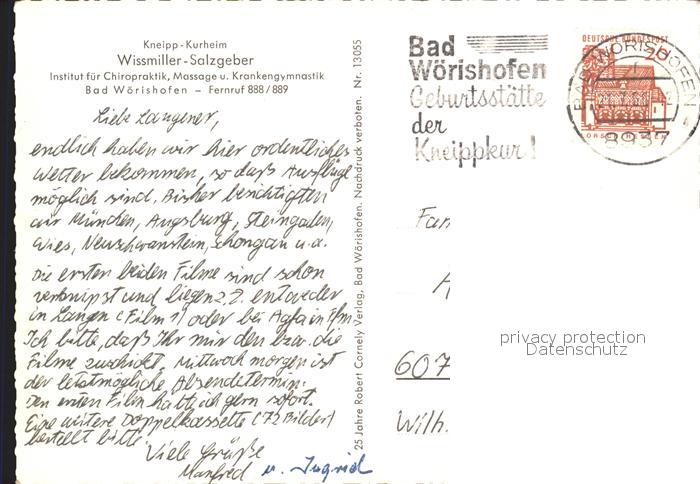 Kneipp-Kurheim
Wissmiller-Salzgeber
Institut für Chiropraktik, Massage u. Krankengymnastik
Bad Wörishofen – Fernruf 888/889
Liebe Langener,
endlich haben wir hier ordentliches
Wetter bekommen, so daß Ausflüge
möglich sind. Bisher besichtigten
wir München, Augsburg, Steingaden,
Wies, Neuschwanstein, Schongau u.a.
Die ersten beiden Filme sind schon
verknipst und liegen z.Z. entweder
in Langen (Film 1) oder bei Agfa in Ffm.
Ich bitte, daß Ihr mir den bzw. die
Filme zuschickt. Mittwoch morgen ist
der letztmögliche Absendetermin.
Den ersten Film hätte ich gern sofort.
Eine weitere Doppelkassette (72 Bilder)
bestellt bitte.
Viele Grüße
Manfred u. Ingrid
25 Jahre Robert Cornely Verlag, Bad Wörishofen. Nachdruck verboten. Nr. 13055
Bad
Wörishofen
Geburtsstätte
der
Kneippkur!
DEUTSCHE BUNDESPOST
20
BAD WÖRISHOFEN
8937
Fam
607
Wilh.
privacy protection
Datenschutz